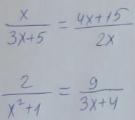 x/(3x+5) = (4x+15)/(2x)
2/(x²+1) = 9/(3x+4)